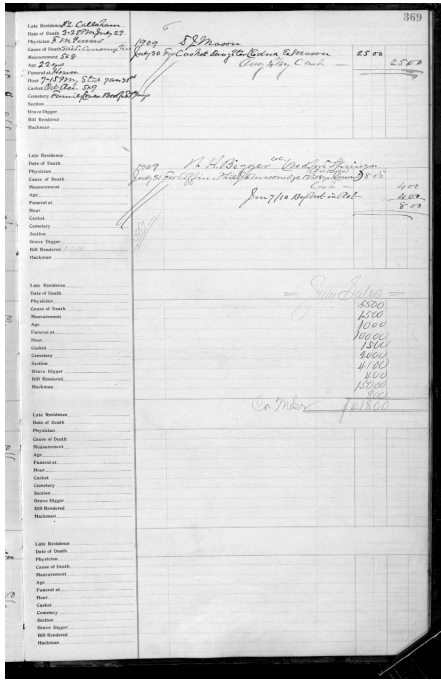 369
Late Residence #2 Callaham
Date of Death 3-25 PM July 29
Physician
Cause of Death
Measurement 5x8
Age 22 yrs
Funeral at House
Hour
Casket Oct Ash. 5x9
Cemetery
Section
Grave Digger
Bill Rendered
Hackman
1909 S J Mason
July 30 For Casket Daughter Edna E Mason 25 00
Aug 4 By Cash — 25 00
Late Residence
Date of Death
Physician
Cause of Death
Measurement
Age
Funeral at
Hour
Casket
Cemetery
Section
Grave Digger
Bill Rendered
Hackman
1909 H. Bigger
July 31 For Coffin 8 00
Cash — 4 00
Jan 7/10 4 00
8 00
Late Residence
Date of Death
Physician
Cause of Death
Measurement
Age
Funeral at
Hour
Casket
Cemetery
Section
Grave Digger
Bill Rendered
Hackman
July Sales
5500
1500
1000
10000
1500
2000
4100
400
15000
800
41800
Late Residence
Date of Death
Physician
Cause of Death
Measurement
Age
Funeral at
Hour
Casket
Cemetery
Section
Grave Digger
Bill Rendered
Hackman
Late Residence
Date of Death
Physician
Cause of Death
Measurement
Age
Funeral at
Hour
Casket
Cemetery
Section
Grave Digger
Bill Rendered
Hackman